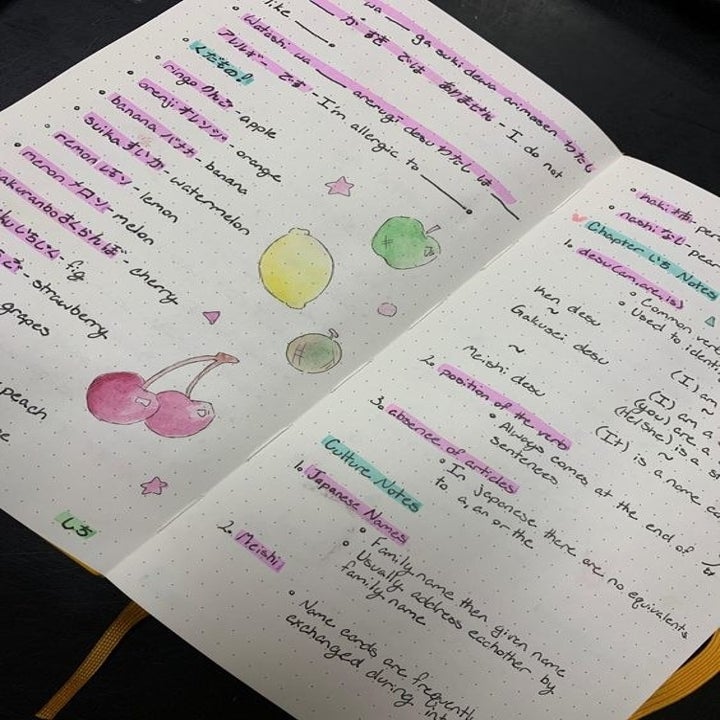 wa ___ ga suki dewa arimasen わたし
___ が すき では ありません - I do not
like ___.
Watashi wa ___ arerugi desu わたし は ___
アレルギー です - I'm allergic to ___
くだもの!
ringo りんご - apple
orenji オレンジ - orange
banana バナナ - banana
suika すいか - watermelon
remon レモン - lemon
meron メロン - melon
akuranbo さくらんぼ - cherry
- fig
- strawberry
grapes
peach
しち
kaki
nashi なし - pea
Chapter いち Notes
1. desu (am, are, is)
Common verb
Used to identi
Ken desu
(I) am
~
~
Gakusei desu
(I) am a
(you) are a
(He/She) is a s
~
~
Meishi desu
(It) is a name ca
2. position of the verb
Always comes at the end of
sentences
3. absence of articles
In japanese there are no equivalents
to a, an or the
Culture Notes
1. Japanese Names
Family name then given name
Usually address eachother by
family name
2. Meishi
Name cards are frequentl
exchanged during int